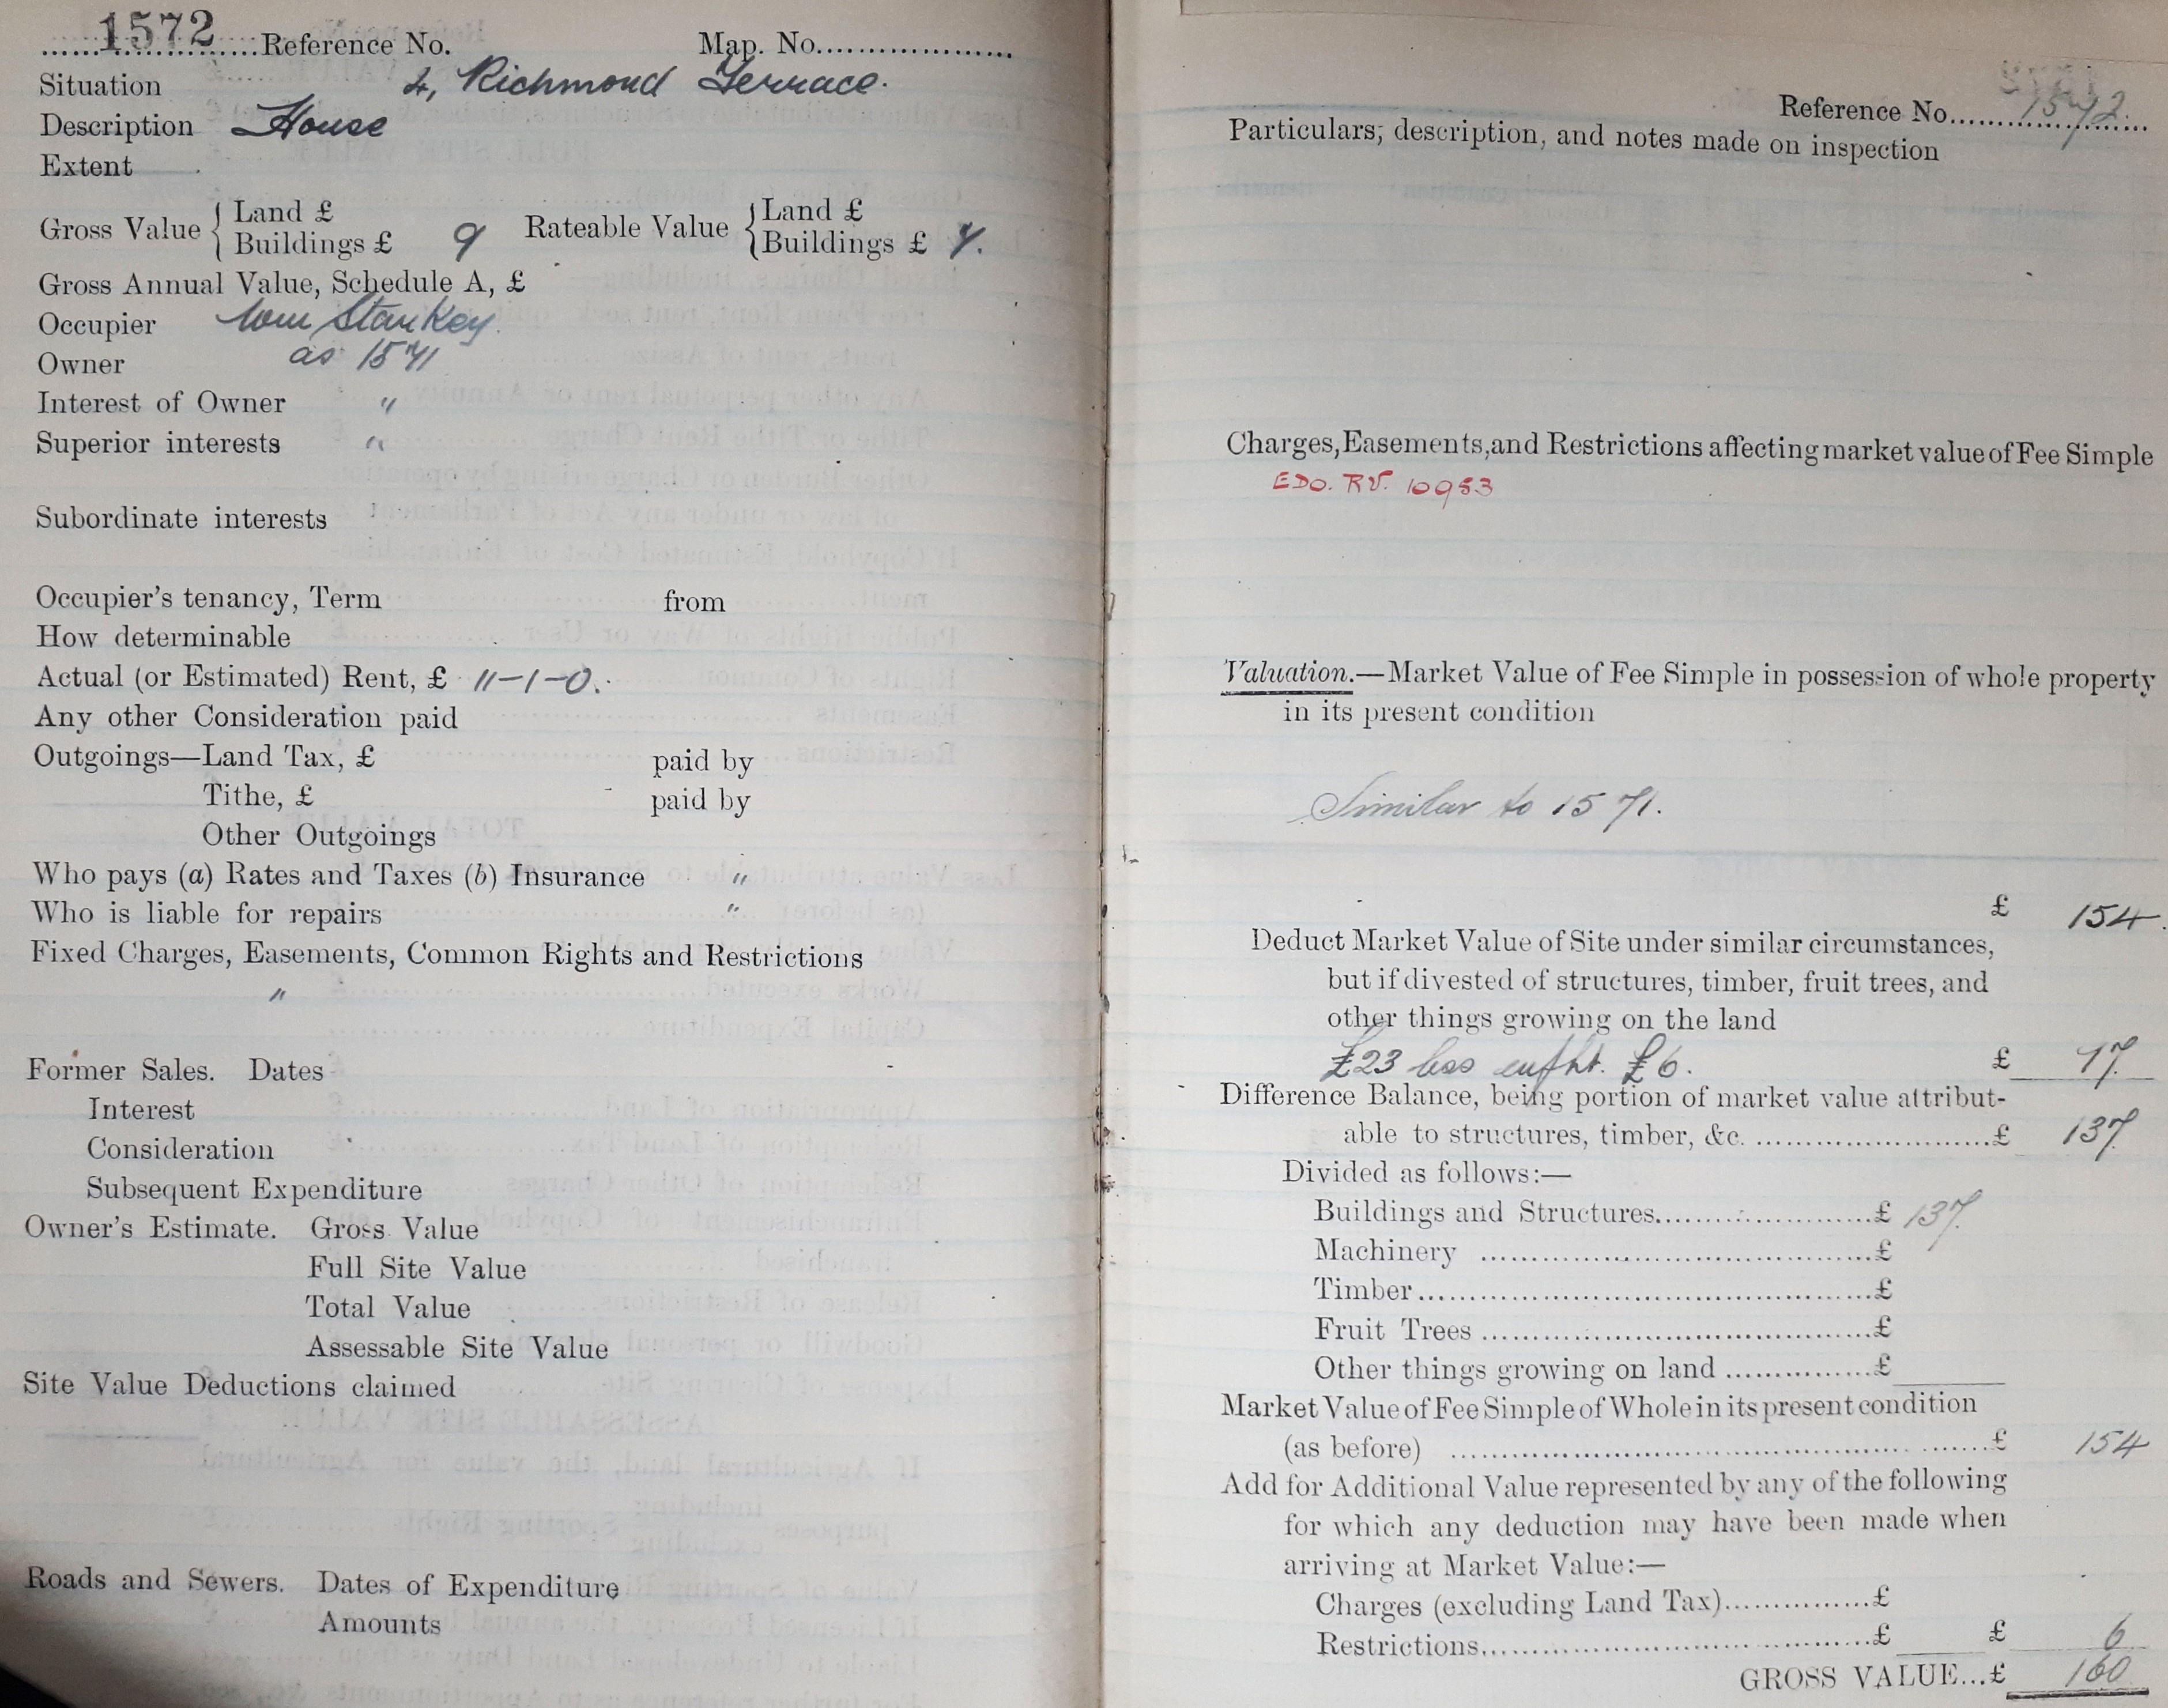 1572 Reference No. Map. No.
Situation 4, Richmond Terrace.
Description House
Extent
Gross Value { Land £ Rateable Value { Land £
Buildings £ 9 Buildings £ 7.
Gross Annual Value, Schedule A, £
Occupier Wm Stankey.
Owner as 1571
Interest of Owner "
Superior interests "
Subordinate interests
Occupier's tenancy, Term from
How determinable
Actual (or Estimated) Rent, £ 11-1-0.
Any other Consideration paid
Outgoings—Land Tax, £ paid by
Tithe, £ paid by
Other Outgoings
Who pays (a) Rates and Taxes (b) Insurance "
Who is liable for repairs "
Fixed Charges, Easements, Common Rights and Restrictions
"
Former Sales. Dates
Interest
Consideration
Subsequent Expenditure
Owner's Estimate. Gross Value
Full Site Value
Total Value
Assessable Site Value
Site Value Deductions claimed
Roads and Sewers. Dates of Expenditure
Amounts
Reference No. 1572.
Particulars, description, and notes made on inspection
Charges, Easements, and Restrictions affecting market value of Fee Simple
EDO. RV. 10953
Valuation.—Market Value of Fee Simple in possession of whole property
in its present condition
Similar to 1571.
£ 154.
Deduct Market Value of Site under similar circumstances,
but if divested of structures, timber, fruit trees, and
other things growing on the land
£23 less enfht. £6. £ 17.
Difference Balance, being portion of market value attribut-
able to structures, timber, &c. £ 137.
Divided as follows:—
Buildings and Structures £ 137.
Machinery £
Timber £
Fruit Trees £
Other things growing on land £
Market Value of Fee Simple of Whole in its present condition
(as before) £ 154
Add for Additional Value represented by any of the following
for which any deduction may have been made when
arriving at Market Value:—
Charges (excluding Land Tax) £
Restrictions £ £ 6
GROSS VALUE...£ 160